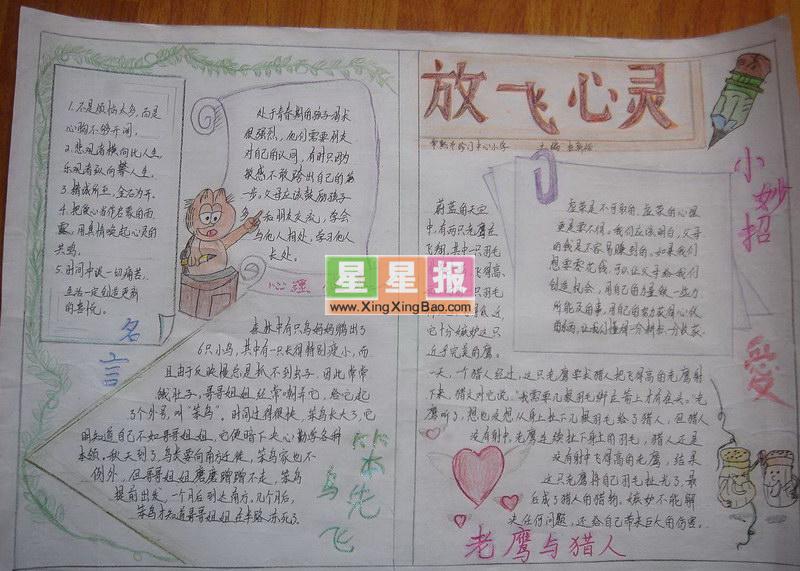 放飞心灵
1.不是烦恼太多,而是
心胸不够开阔。
2.悲观者横向比人生,
乐观者纵向攀人生。
3.精诚所至,金石为开。
4.把爱心当作名贵的雨
露,用真情唤起心灵的
共鸣。
5.时间中诶一切痛苦,
生活一定创造更新
的喜悦。
名言
处于青春期的孩子
很强烈,他们需要朋友
对自己的认同,有时只因为
敏感不敢踏出自己的第
一步。父母应该鼓励孩子多
和朋友交友,学会
与他人相处,学习他人
长处。
心理
森林中有只鸟妈妈孵出了
6只小鸟,其中有一只长得特别瘦小,而
且由于反映慢总是抓不到虫子。因此常常
饿肚子,哥哥姐姐经常嘲弄它,给它起
了个外号,叫“笨鸟”。时间过得很快,笨鸟长大了,它
因知道自己不如哥哥姐姐,它便暗下决心勤学各种
本领。秋天到了,鸟类要向南方迁徙,笨鸟家也不
例外,但哥哥姐姐磨磨蹭蹭不走,笨鸟
提前出发,一个月后到达南方,几个月后,
笨鸟才知道哥哥姐姐在半路冻死了。
笨鸟先飞
小妙招
虚荣是不可取的,虚荣的心理
更是要不得。我们应该明白,父母
的钱是不容易赚到的。如果我们
想要零花钱,可以让父母给我们
创造机会,用自己的力量做一些力
所能及的事,用自己的努力获得心仪
的东西,让我们懂得一分耕耘,一分收获
爱
蔚蓝的天空
中,有两只老鹰在
飞翔,其中一只羽毛
飞得高,
它十分嫉妒这只
近乎完美的鹰。
一天,一个猎人经过,这只老鹰要求猎人把飞得高的老鹰射
下来,猎人对它说:“我需要几根羽毛绑在箭上才有准头。”老
鹰听了,想也没想从身上扯下几根羽毛给了猎人,但猎人
没有射中,老鹰连续扯下身上的羽毛,猎人还是
没有射中飞得高的老鹰,结果
这只老鹰将自己羽毛扯光了,最
后成了猎人的猎物。嫉妒不能解
决任何问题,还给自己带来巨大的伤害。
老鹰与猎人
星星报
www.XingXingBao.com